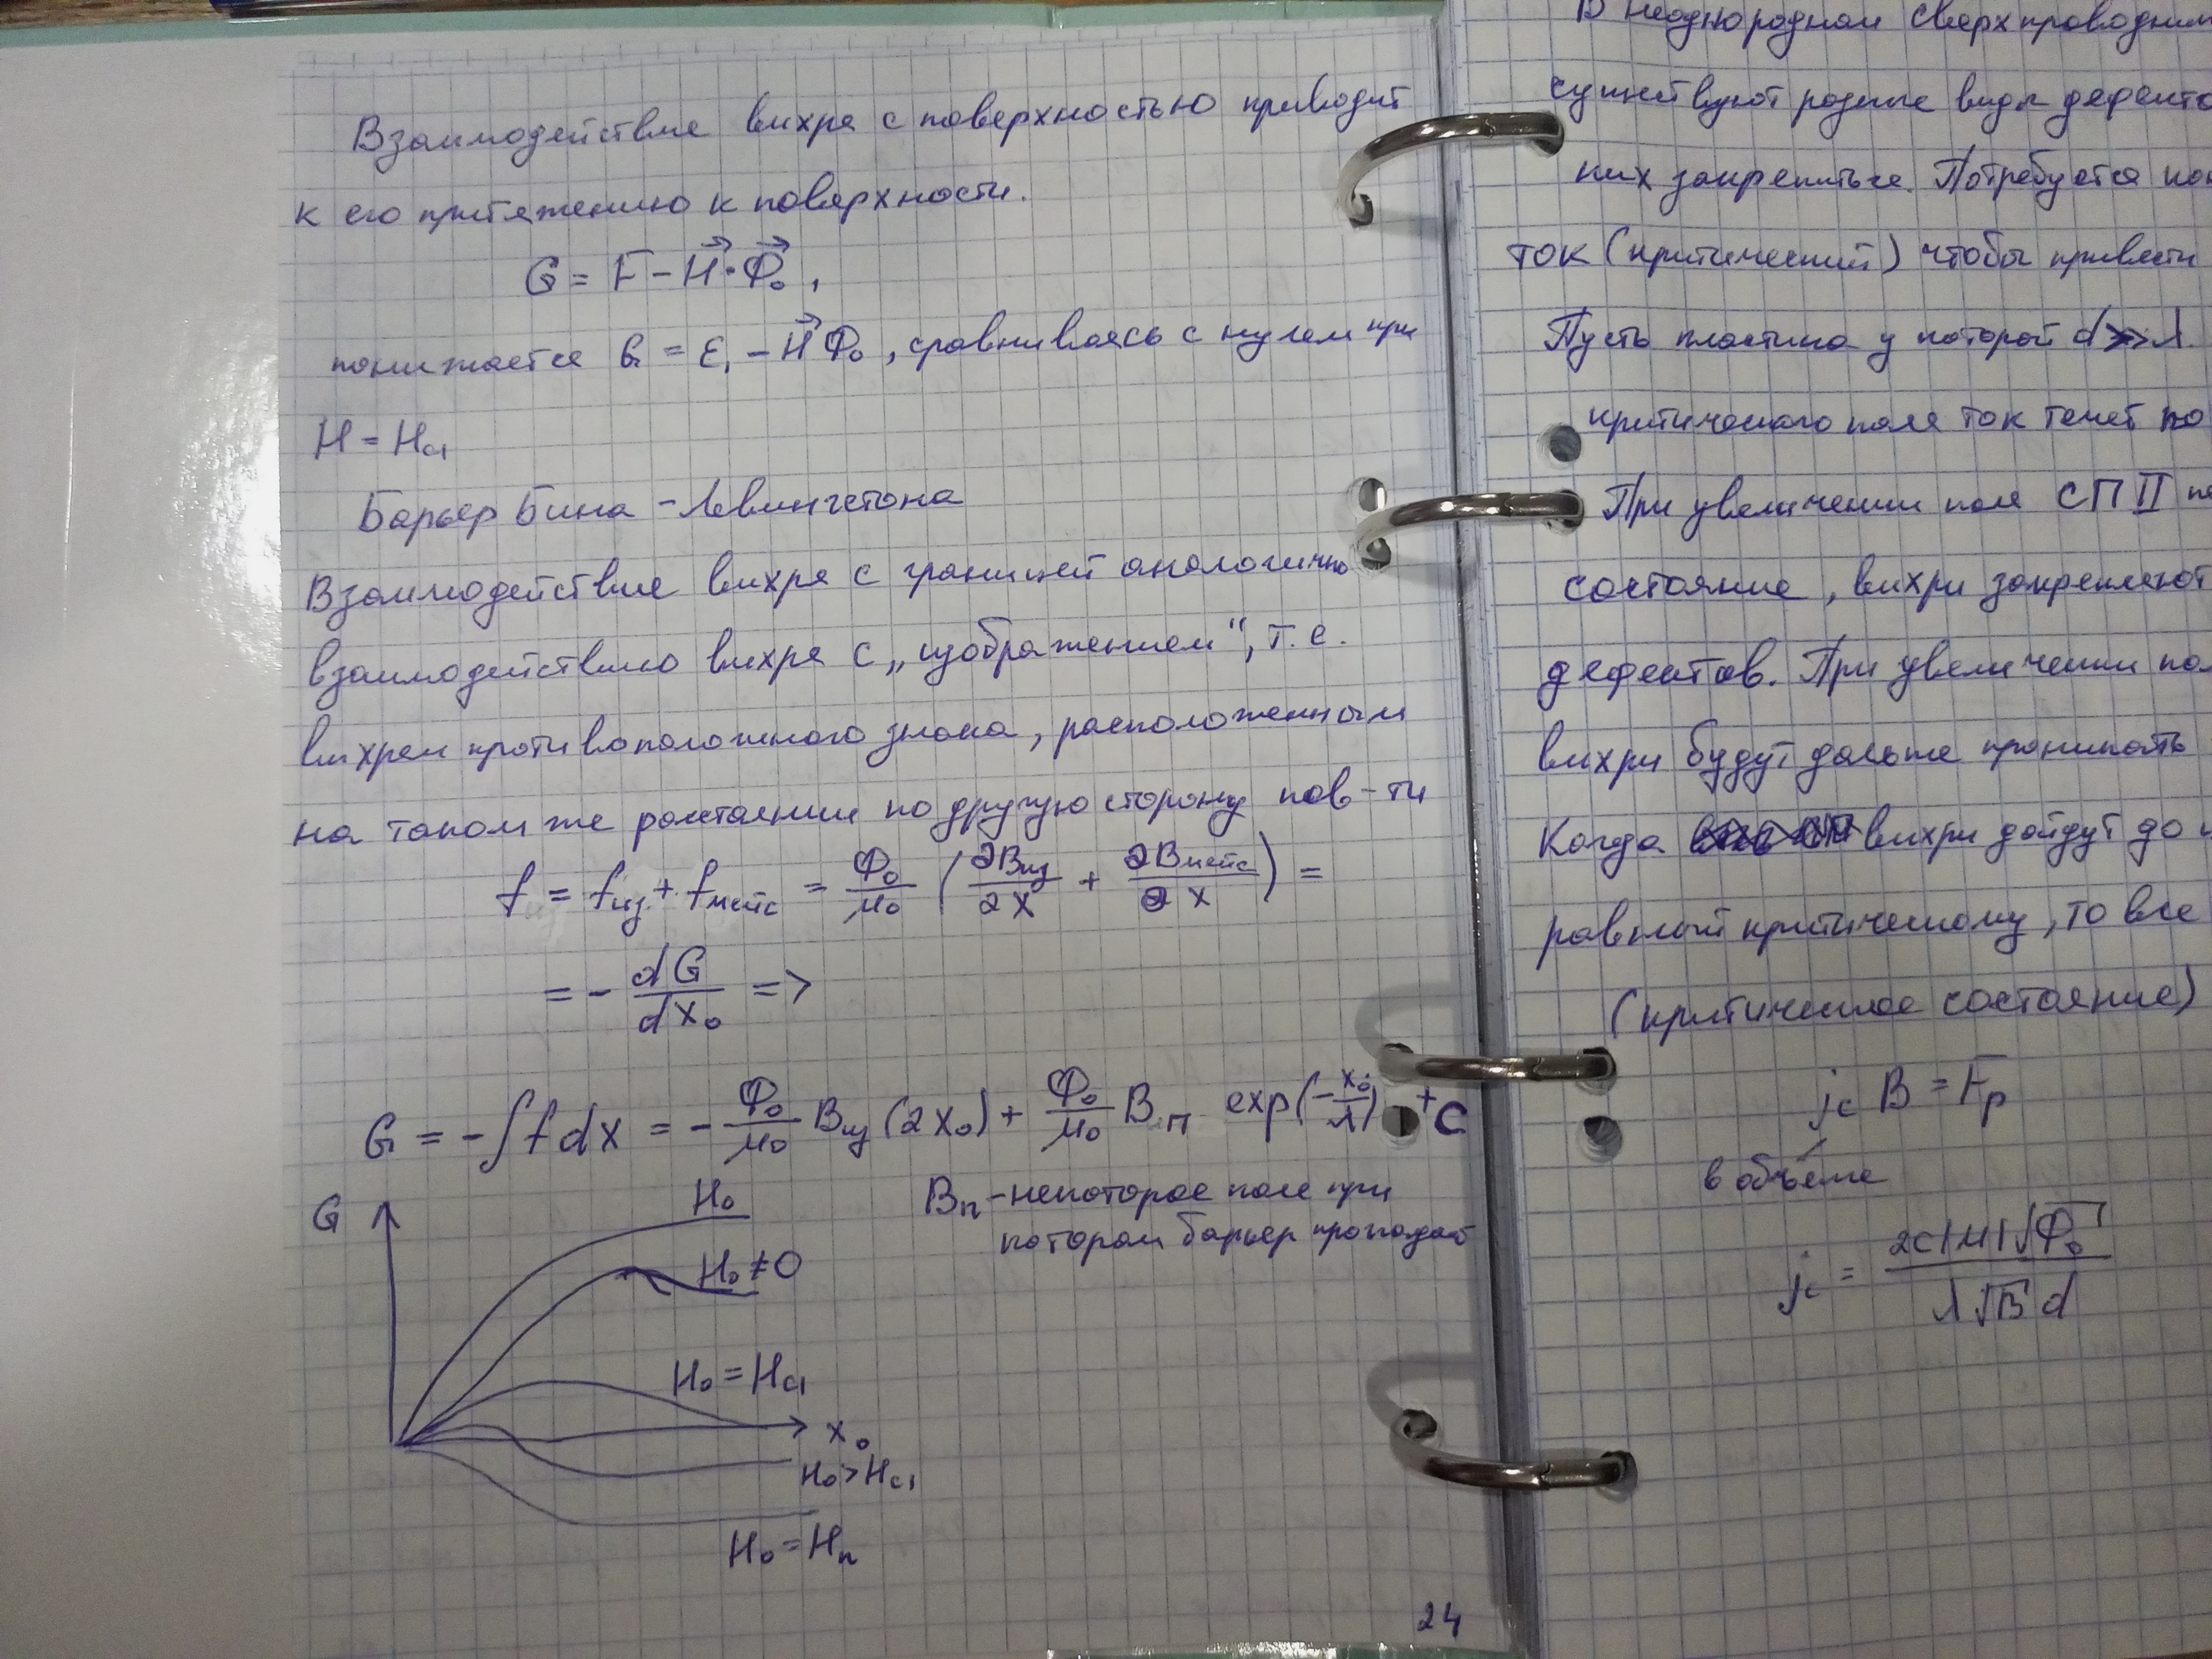 Взаимодействие вихря с поверхностью приводит
к его притяжению к поверхности.
G = F - H⃗ · Φ⃗₀,
понижается G = ε₁ - H⃗ Φ₀, сравниваясь с нулем при
H = Hc1
Барьер Бина - Левингстона
Взаимодействие вихря с границей аналогично
взаимодействию вихря с „изображением“, т.е.
вихрем противоположного знака, расположенным
на таком же расстоянии по другую сторону пов-ти
f = fиз + fмейс = Φ₀/μ₀ (∂Bиз/∂x + ∂Bмейс/∂x) =
= - dG/dx₀ =>
G = -∫f dx = - Φ₀/μ₀ Bиз (2x₀) + Φ₀/μ₀ Bп exp(-x₀/λ) + C
Bп - некоторое поле при
котором барьер пропадает
G
H₀
H₀ ≠ 0
H₀ = Hc1
x₀
H₀ > Hc1
H₀ = Hп
24
В неоднородном сверхпроводник
существуют разные виды дефекто
них закрепиться. Потребуется
ток (критический) чтобы привести
Пусть пластина у которой d >> λ.
критического поля ток течет по
При увеличении поля СП II пе
состояние, вихри закрепляют
дефектов. При увеличении пол
вихри будут дальше проникать
Когда вихри дойдут до
равный критическому, то все
(критическое состояние)
jc B = Fp
в объёме
jc = 2C|M|√Φ₀ / λ√B d